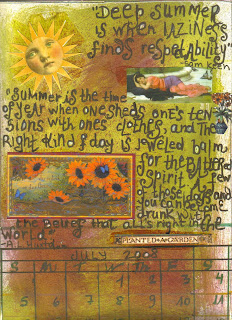 "Deep summer
is when laziness
finds respectability"
Sam Keen
"Summer is the time
of year when one sheds one's ten
sions with one's clothes, and the
right kind of day is jeweled balm
for the battered
spirit. A few
of those days and
you can become
drunk with
the belief that all's right in the
world"
PLANTED A GARDEN
JULY
S M T W T F S
1 2 3 4
5 6 7 8 9 10 11